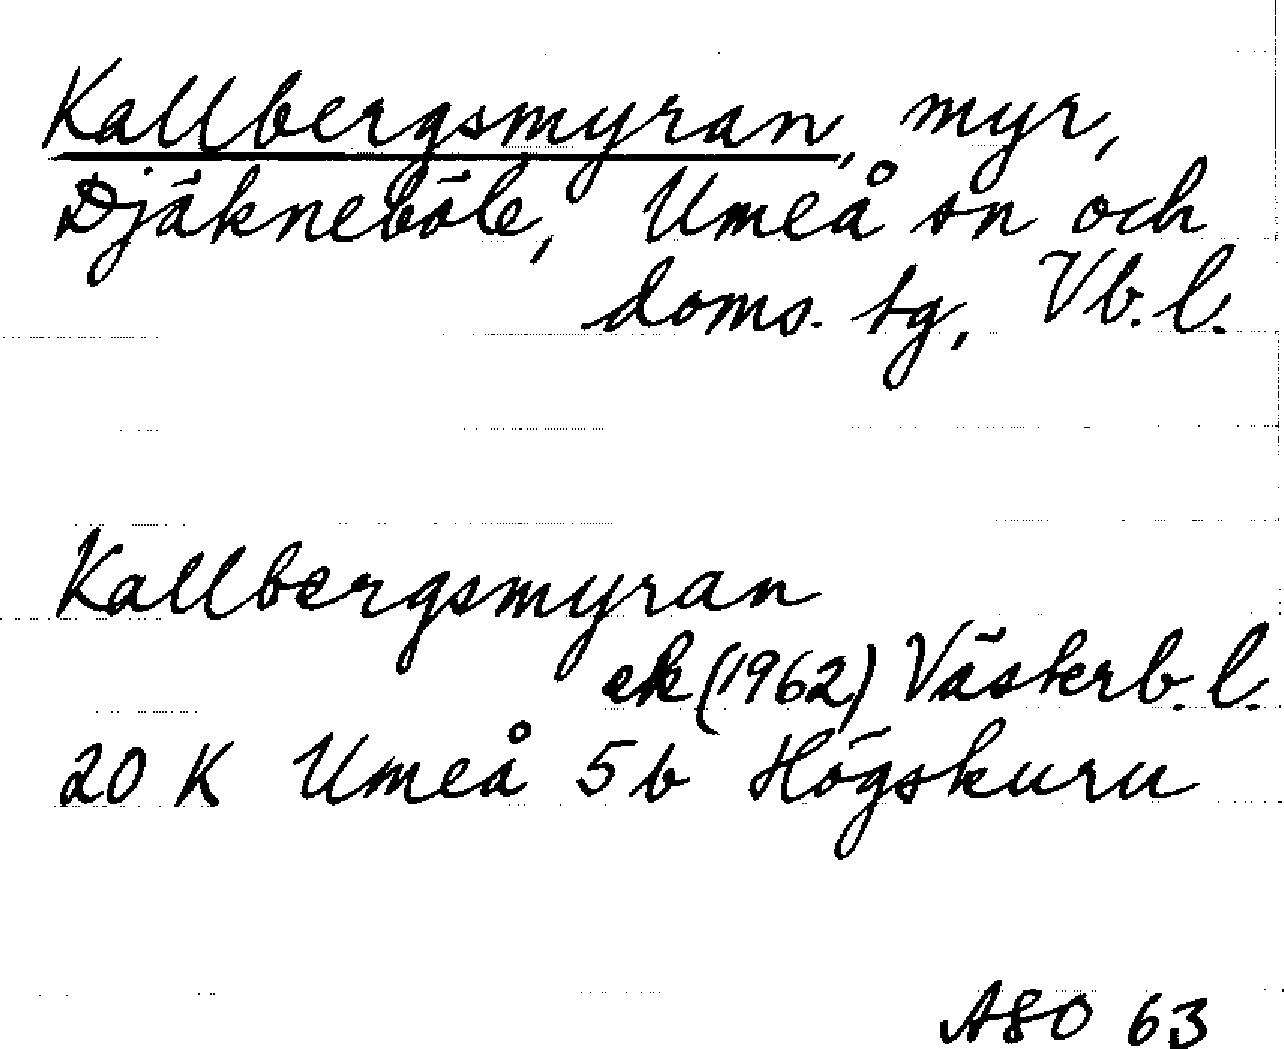 Kallbergsmyran, myr,
Djäkneböle, Umeå sn och
doms. tg, Vb. l.
Kallbergsmyran
ek (1962) Västerb. l.
20 K Umeå 5b Högskuru
ASO 63